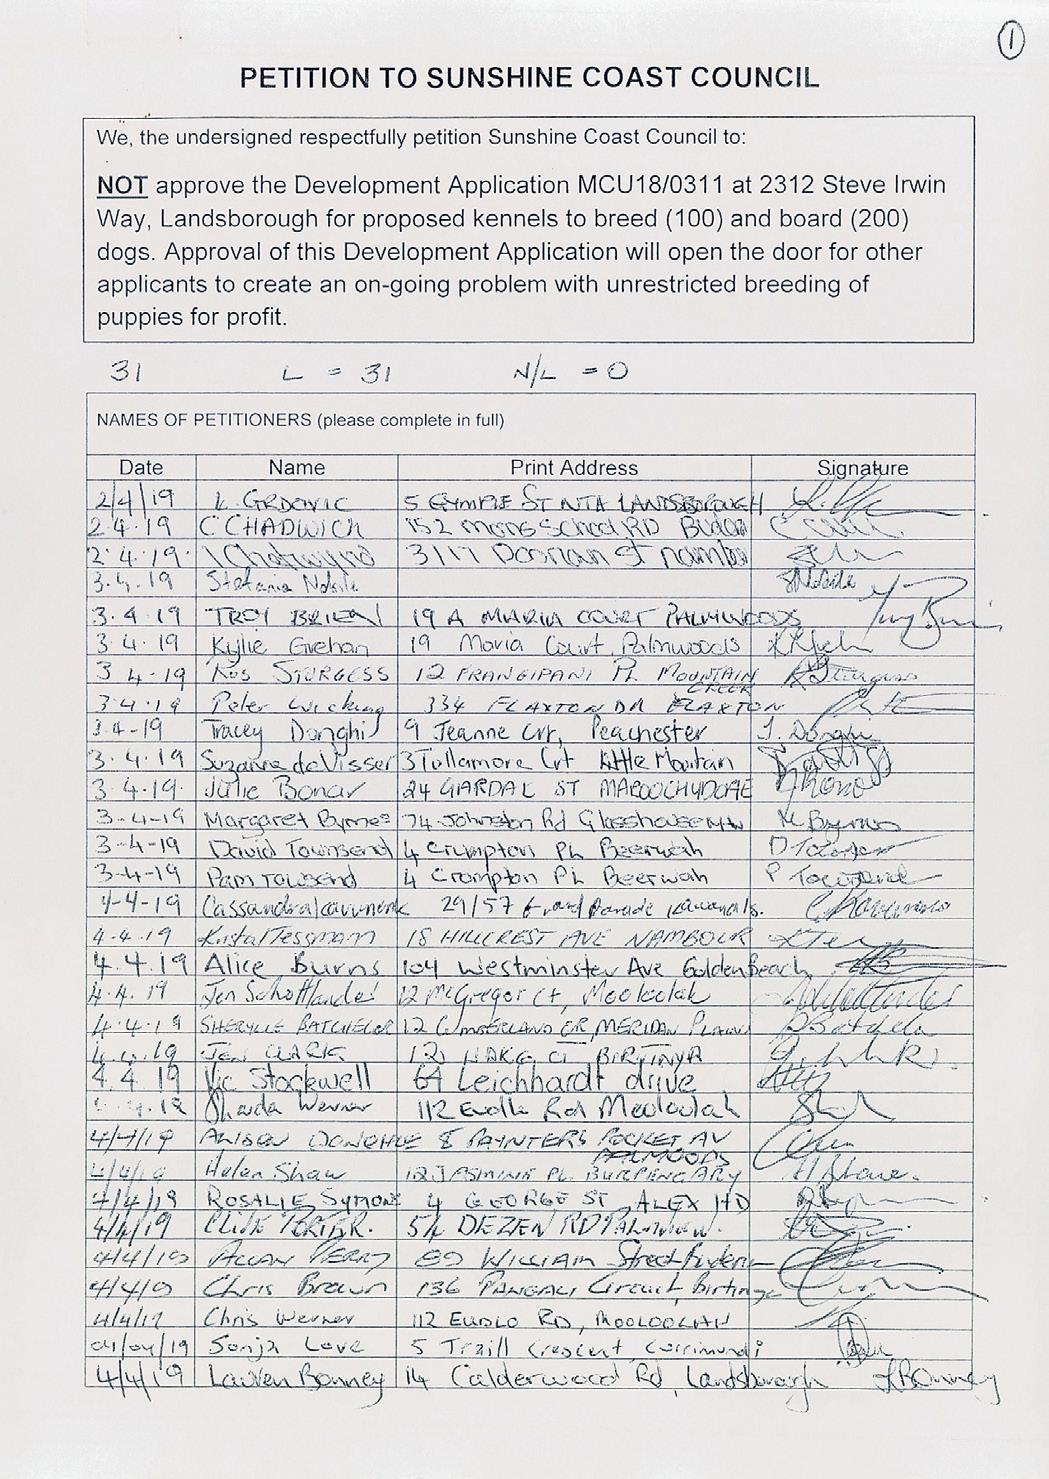 1
PETITION TO SUNSHINE COAST COUNCIL
We, the undersigned respectfully petition Sunshine Coast Council to:
NOT approve the Development Application MCU18/0311 at 2312 Steve Irwin
Way, Landsborough for proposed kennels to breed (100) and board (200)
dogs. Approval of this Development Application will open the door for other
applicants to create an on-going problem with unrestricted breeding of
puppies for profit.
31 L = 31 N/L = 0
NAMES OF PETITIONERS (please complete in full)
Date Name Print Address Signature
2/4/19 L. GRDOVIC 5 GYMPIE ST NTH LANDSBOROUGH
2.4.19 C CHADWICH 152 School RD
2.4.19 3/117 St
3.4.19 Stefania
3.4.19 TROY BRIEN 19 A MARIA COURT PALMWOODS
3.4.19 Kylie Grehan 19 Maria Court, Palmwoods
3 4.19 Ros STURGESS 12 FRANGIPANI PL MOUNTAIN
CREEK
3.4.19 Peter Wicking 334 FLAXTON DR FLAXTON
3.4-19 Tracey Donghi 9 Jeanne Crt, Peachester T. Donghi
3.4.19 Suzanne de Visser 3 Tullamore Crt Little Mountain
3.4.19. Julie Bonar 24 GARDAK ST MAROOCHYDORE
3-4-19 Margaret Byrnes 74 Johnston Rd Glasshouse Mtn M Byrnes
3-4-19 David Townsend 4 Crompton PL Beerwah
3-4-19 Pam Towsend 4 Crompton PL Beerwah P Townsend
4-4-19 Cassandra 29/57 Grand Parade
4.4.19 Kristal Tessmann 18 HILLCREST AVE NAMBOUR
4.4.19 Alice Burns 104 Westminster Ave Golden Beach
4.4.19 Jen 12 McGregor Ct, Mooloolah
4.4.19 SHERYLE BATCHELOR 12 CUMBERLAND CR, MERIDAN PLAINS
4.4.19 JEN CLARK BIRTINYA
4.4.19 Vic Stockwell 64 Leichhardt drive
Werner 112 Eudlo Rd Mooloolah
4/4/19 ALISON DONOHUE 8 PAYNTERS POCKET AV
4/4/19 Helen Shaw 12 JASMINE PL. BURPENGARY
4/4/19 ROSALIE SYMONS 4 GEORGE ST, ALEX HD
4/4/19 CLIVE PORTER. RD
4/4/19 ALLAN PERRY 89 WILLIAM Street
4/4/19 Chris Brown 136 Circuit, Birtinya
4/4/19 Chris Werner 112 EUDLO RD, MOOLOOLAH
04/04/19 Sonja Love 5 Traill Crescent Currimundi
4/4/19 Lauren Bonney 14 Calderwood Rd, Landsborough LBonney